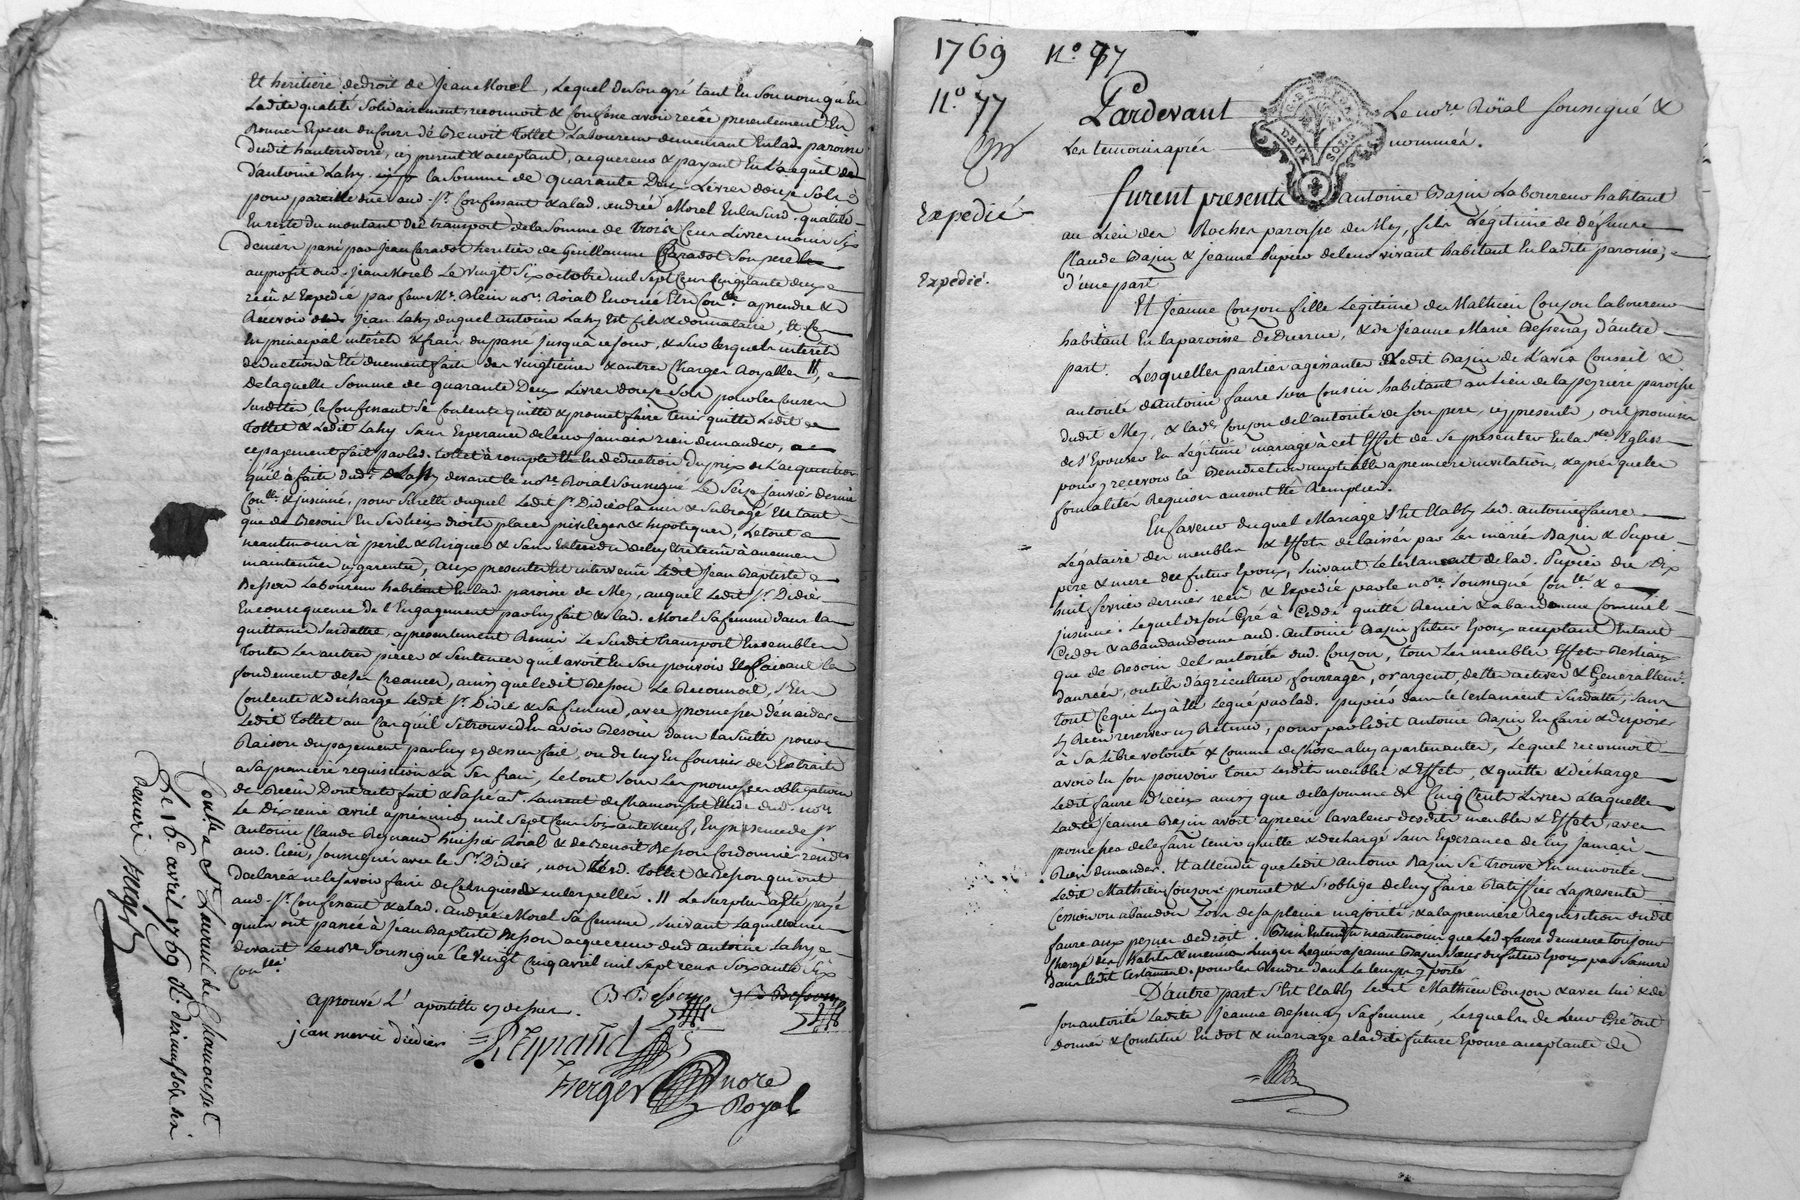 Et heritiere de droit de Jean Morel, Lequel de Son gré tant En Son nom qu'En
Ladite qualité Solidairement reconnoit & Confesse avoir recëu presentement En
Bonnes Especes du Cours de Benoit Tollet Laboureur demeurant En lad. paroisse
dudit hauterivoire, icy present & acceptant, acquereur & payant En L'acquit de
d'antoine Lahy la Somme de quarante Deux Livres douze Sols
pour pareille due aud. Sr. Confessant & a lad. andrée Morel En la Susd. qualité
En reste du montant du transport de la Somme de trois Cent Livres moins Six
deniers passé par Jean Caradot heritier de Guillaume Caradot Son pere
au profit dud. Jean Morel Le vingt Six octobre mil Sept Cent Cinquante deux
recëu & Expedié par feu Me. Blein nore. Roial
Recevoir Jean Lahy duquel antoine Lahy Est fils & donnataire, Et Ce
En principal interets & frais du passé jusqu'à ce jour, & Sur lesquels interets
deduction à Eté duement faite des vingtiemes & autres Charges Royalles //,
de laquelle Somme de quarante Deux Livres douze Sols pour les Causes
Susdites le Confessant Se Contente quitte & promet faire tenir quitte Ledit
Tollet & Ledit Lahy Sans Esperance de leur jamais rien demander,
ce payement fait par led. Tollet à compte Et En deduction du prix de L'acquisition
qu'il à faite dud. Lahy devant le nore. Roial Soussigné Le Seize Janvier dernier
Conllé. & jnsinué, pour Sûreté duquel Ledit Sr. Didier l'a mis & Subrogé En tant
que de Besoin En Ses lieux droits places privileges & hipoteques, Le tout
neantmoins à perils & Risques & Sans Entendre de luy Etre tenu à aucune
maintenüe ny garentie, aux presentes Est intervenu Ledit Jean Baptiste
Besson Laboureur habitant En lad. paroisse de Mey, auquel Ledit Sr. Didier
En consequence de l'Engagement par luy fait & lad. Morel Sa femme dans la
quittance Surdattée, a presentement Remis Le Susdit transport Ensemble
Toutes les autres pieces & Sentences qu'il avoit En Son pouvoir Et faisant le
fondement de Ses Creances, ainsy que ledit Besson Le Reconnoit, S'En
Contente & decharge Ledit Sr. Didier & Sa femme, avec promesse d'en aider
Ledit Tollet au Cas qu'il Se trouve d'En avoir Besoin dans la Suitte pour
Raison du payement par luy cy dessus fait, ou de luy En fournir des Extraits
a Sa premiere requisition & à Ses frais, Le tout Sous Les promesses obligations
de Biens Dont acte fait & Passé a St. Laurent de Chamousset Etude dud. nore
Le Dix avril après midy mil Sept Cent Soixante neuf, En presence de Sr.
antoine Claude Reynaud huissier Roial & de Benoit Besson Cordonnier
aud. Lieu, Soussignes avec le Sr. Didier, non Led. Tollet & Besson qui ont
declaré ne le Savoir faire de Ce Enquis & interpellés. // Le Surplus a Eté payé
aud. Sr. Confessant & a lad. andrée Morel Sa femme, Suivant La quittance
qu'ils ont passée à Jean Baptiste Besson acquereur dud antoine Lahy
devant Le nore Soussigné le vingt Cinq avril mil Sept Cent Soixante Six
Conllé.
aprouvé L'apostille cy dessus. B Besson
jean merie didier
Reynaud
Berger nore
Royal
Conllé a St. Laurent de Chamousset
Le 16e avril 1769 R. treize Sols Six
Deniers Berger
1769 N.o 77
N.o 77
Expedié
Expedié.
Pardevant Le nore. Roïal Soussigné &
Les temoins après nommés.
GEN. DE LYON
DEUX SOLS
furent presents antoine Bazin Laboureur habitant
au Lieu des Roches paroisse de Mey, fils Légitime de deffunts
Claude Bazin & Jeanne Pupier de leur vivant habitant En ladite paroisse,
d'une part
Et Jeanne Couzon fille Legitime de Mathieu Couzon laboureur
habitant En la paroisse de Duerne, & de Jeanne Marie Bessenay d'autre
part. Lesquelles parties agissantes Ledit Bazin de L'avis Conseil &
autorité d'antoine faure Son Cousin habitant au lieu de la peyriere paroisse
dudit Mey, & lade. Couzon de l'autorité de Son pere, icy presents, ont promis
de S'Epouser En Légitime mariage à cet Effet de Se presenter En la Ste. Eglise
pour y recevoir la Benediction nuptialle a premiere invitation, & après que les
formalités Requises auront Eté Remplies.
En faveur duquel Mariage S'Est Etably Led. antoine faure
Légataire des meubles & Effets delaissés par les mariés Bazin & Pupié
pere & mere du futur Epoux, Suivant le testament de lad. Pupier du Dix
huit fevrier dernier recëu & Expedié par le nore. Soussigné Conllé. &
jnsinué; Lequel de Son Gré à Cedé quitté Remis & abandonné Comme il
Cede & abandonne aud. antoine Bazin futur Epoux acceptant Entant
que de Besoin de l'autorité dud. Couzon, Tous les meubles Effets Bestiaux
danrées, outils d'agriculture, fourrages, or argent, dettes actives & Generallemt.
Tout Ce qui Luy a Eté Legué par lad. Pupier dans le testament Surdatté, Sans
y Rien reserver ny Retenir, pour par Ledit antoine Bazin En faire & disposer
à Sa libre volonté & Comme de choses a luy apartenantes, Lequel reconnoit
avoir En Son pouvoir tous lesdits meubles & Effets, & quitte & decharge
Ledit faure d'iceux ainsy que de la Somme de Cinq Cents Livres a laquelle
Ladite Jeanne Bazin avoit aprecié la valeur desdits meubles & Effets, avec
promesse de le faire tenir quitte & decharge Sans Esperance de luy jamais
Rien demander. Et attendu que Ledit antoine Bazin Se trouve En minorité
Ledit Mathieu Couzon promet & S'oblige de luy faire Ratiffier La presente
Cession ou abandon Lors de Sa pleine majorité & a la premiere Requisition dudit
faure aux peines de droit. Bien Entendu neantmoins que Led. faure demeure toujours
Chargé des habits & menus Linges Legués a Jeanne Bazin Soeur du futur Epoux par Sa mere
dans Ledit testament. pour les Rendre dans le temps y porté
D'autre part S'Est Etably Ledit Mathieu Couzon & avec lui & de
Son autorité Ladite Jeanne Bessenay Sa femme, Lesquels de Leur Gré ont
donné & Constitué En dot & mariage a ladite future Epouse acceptante de